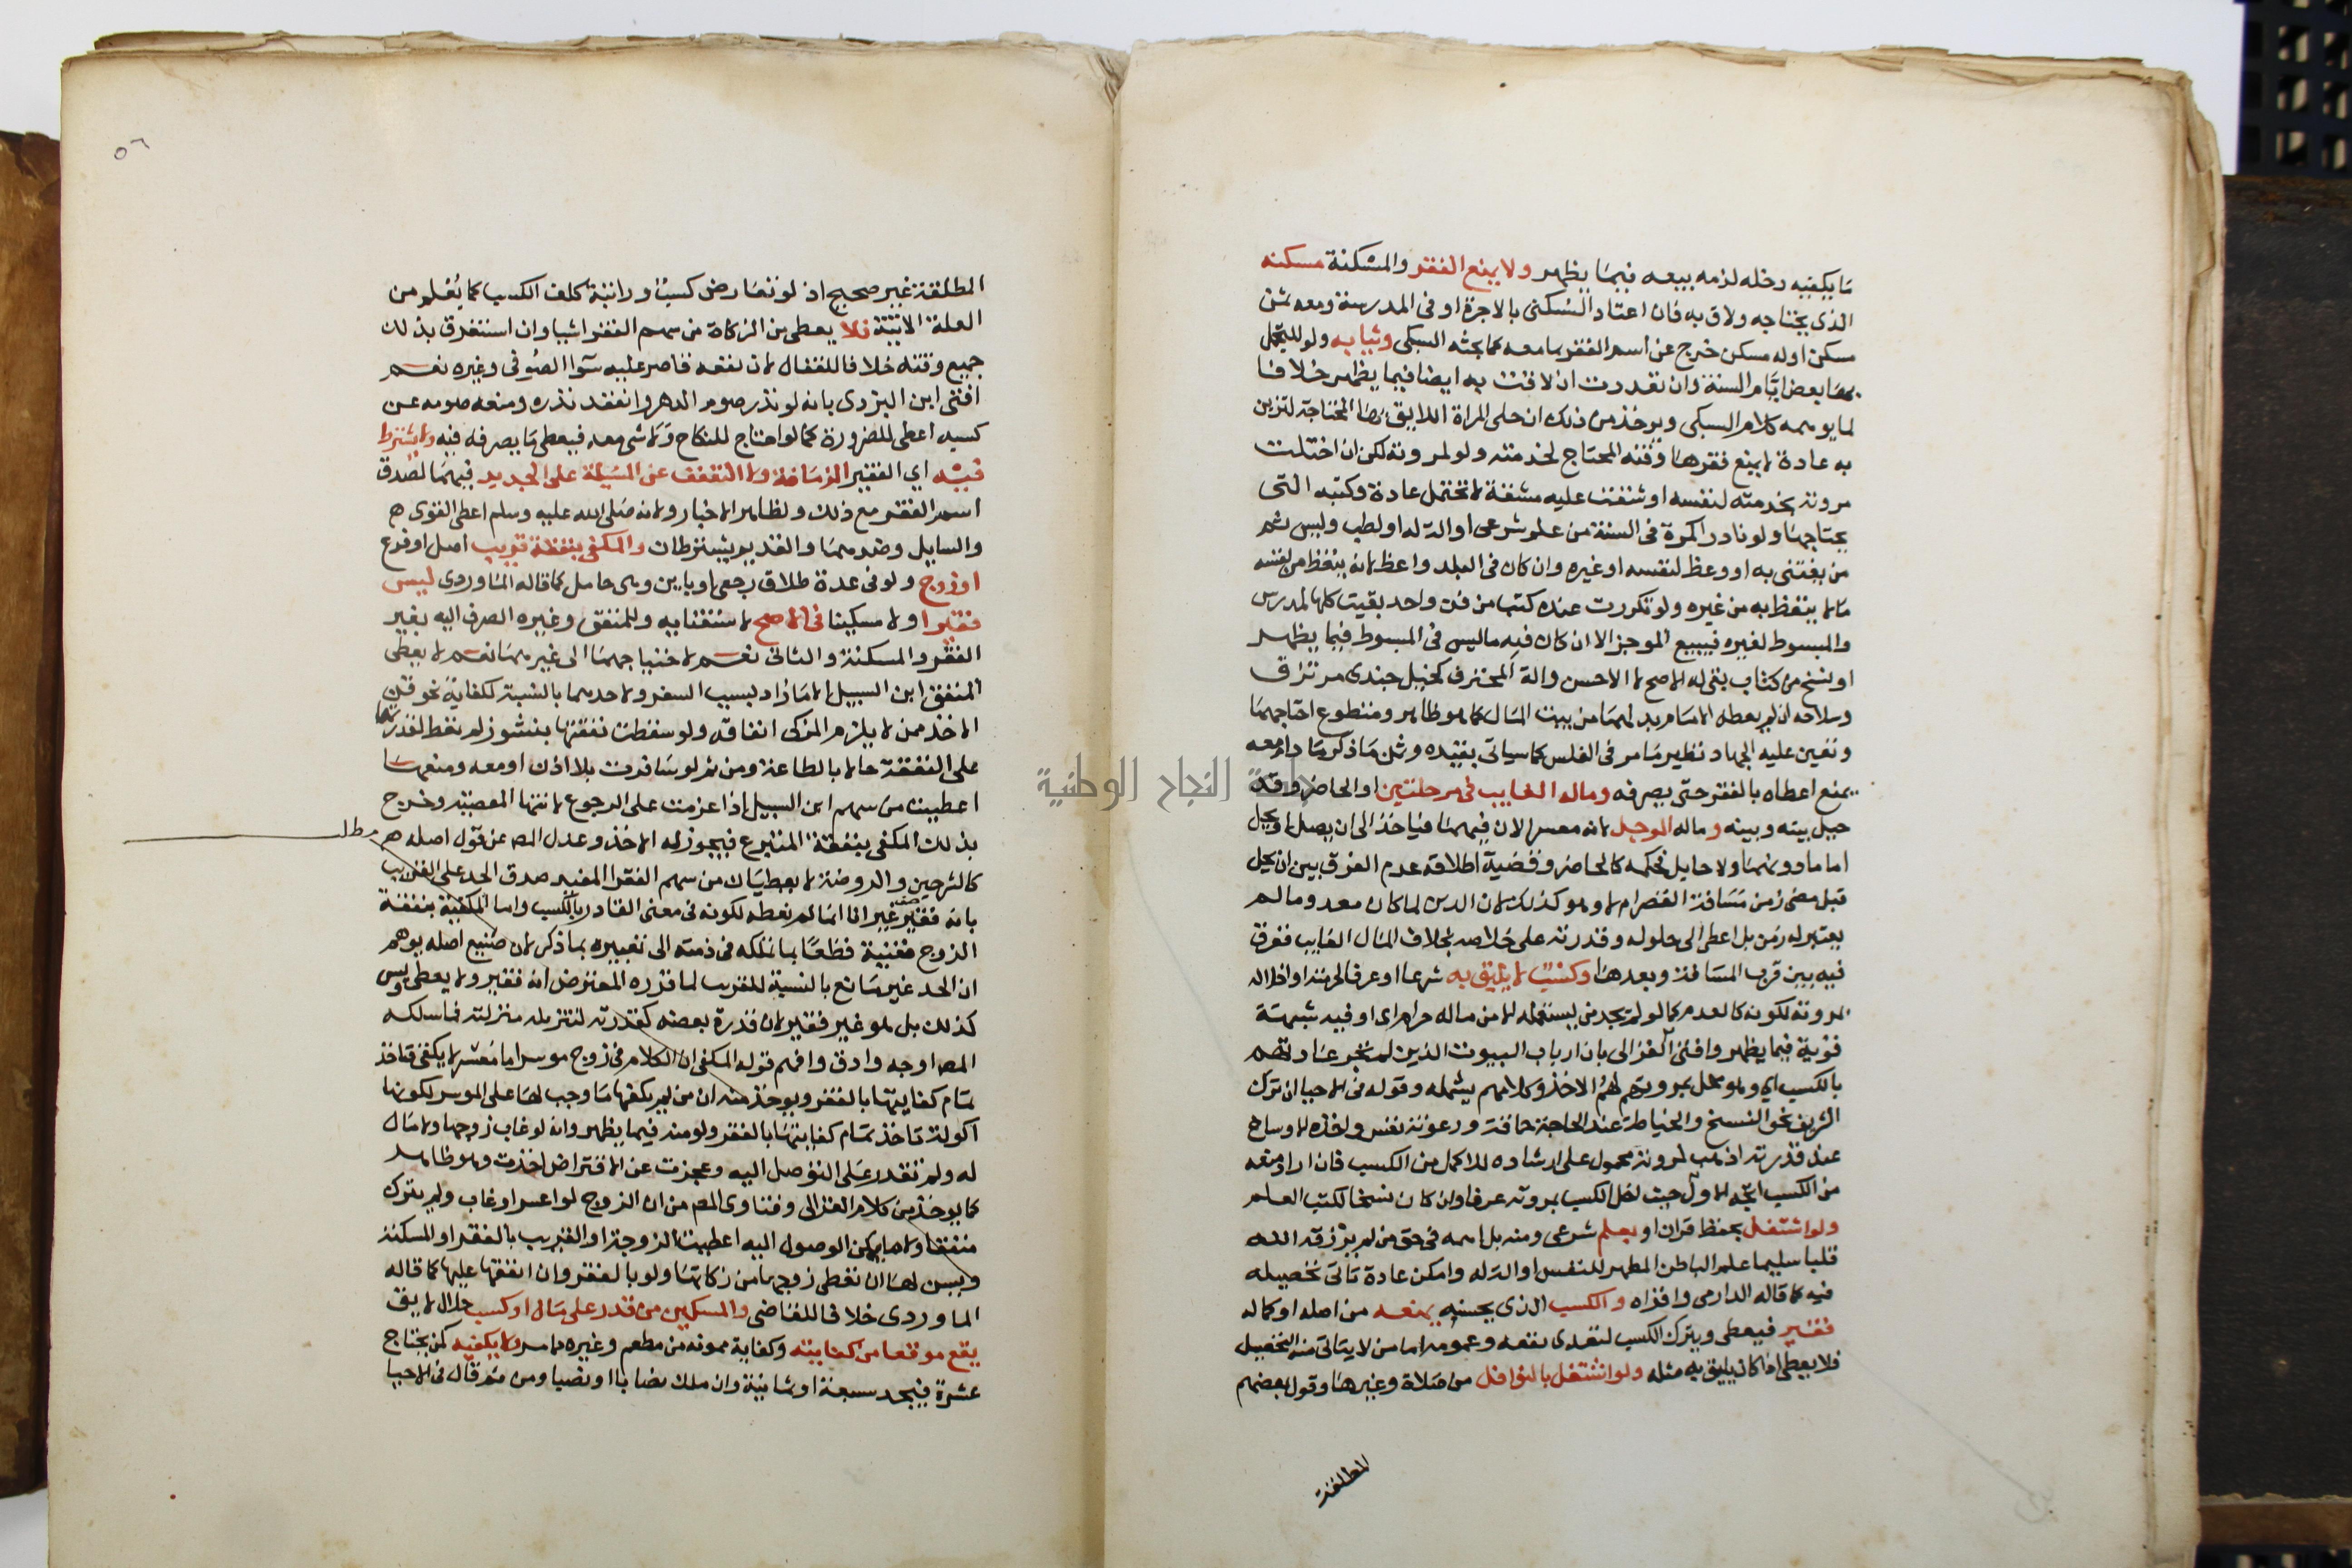 ما يكفيه دخله لزمه بيعه فيما يظهر ولا يمنع الفقر والمسكنة مسكنه
الذي يحتاجه ولاق به فان اعتاد السكنى بالاجرة او في المدرسة ومعه ثمن
مسكن اوله مسكن خرج عن اسم الفقر بما معه كما بحثه السبكي وثيابه ولو للتجمل
بها بعض ايام السنة وان تعددت ان لاقت به ايضا فيما يظهر خلافا
لما يوهمه كلام السبكي ويوخذ من ذلك ان حلي المراة اللايق بها المحتاجة لتزين
به عادة لا يمنع فقرها وقنه المحتاج لخدمته ولو لمروته لكن ان اختلت
مروته بخدمته لنفسه او شقت عليه مشقة لا تحتمل عادة وكتبه التي
يحتاجها ولو نادرا كمرة في السنة من علم شرعي او الة له او لطب وليس ثم
من يعتني به او وعظ لنفسه او غيره وان كان في البلد واعظ لانه يتعظ من نفسه
ما لا يتعظ به من غيره ولو تكررت عنده كتب من فن واحد بقيت كلها لمدرس
والمبسوط لغيره فيبيع الموجز الا ان كان فيه ما ليس في المبسوط فيما يظهر
او نسخ من كتاب بقي له الاصح لا الاحسن والة المحترف كخيل جندي مرتزق
وسلاحه ان لم يعطه الامام بدلهما من بيت المال كما هو ظاهر ومتطوع احتاجهما
وتعين عليه الجهاد نظير ما مر في الفلس كما سياتي بقيده وثمن ما ذكر ما دام معه
يمنع اعطاه بالفقر حتى يصرفه وماله الغايب في مرحلتين او الحاضر وقد
حيل بينه وبينه وماله الموجل لانه معسر الان فيهما فياخذ الى ان يصل او يحل
اما ما دونهما ولا حايل فحكمه كالحاضر وقضية اطلاقه عدم الفرق بين ان يحل
قبل مضي زمن مسافة القصر ام لا وهو كذلك لان الدين لما كان معدوما لم
يعتبر له زمن بل اعطي الى حلوله وقدرته على خلاصه بخلاف المال الغايب ففرق
فيه بين قرب المسافة وبعدها وكسب لا يليق به شرعا او عرفا لحرمته او اخلاله
بمروته لكونه كالعدم كما لو لم يجد من يستعمله الا من ماله حرام اى او فيه شبهة
قوية فيما يظهر وافتى الغزالي بان ارباب البيوت الذين لم تجر عادتهم
بالكسب اي وهو مخل بمروتهم لهم الاخذ وكلامهم يشمله وقوله في الاحيا ان ترك
الشريف نحو النسخ والخياطة عند الحاجة حماقة ورعونة نفس واخذه الاوساخ
عند قدرته اذهب لمروته محمول على ارشاده للاكمل من الكسب فان اراد منعه
من الكسب اتجه الاول حيث اخل الكسب بمروته عرفا وان كان نسخا لكتب العلم
ولو اشتغل بحفظ قران او بعلم شرعي ومنه بل اهمه في حق من لم يرزقه الله
قلبا سليما علم الباطن المطهر للنفس او الة له وامكن عادة تاتي تحصيله
فيه كما قاله الدارمي واقراه والكسب الذي يحسنه يمنعه من اصله او كماله
فقير فيعطى ويترك الكسب لتعدي نفعه وعمومه اما من لا يتاتى منه التحصيل
فلا يعطى اذا كان يليق به مثله ولو اشتغل بالنوافل من صلاة وغيرها وقول بعضهم
المطلقة
٥٦
المطلقة غير صحيح اذ لو تعارض كسبٌ وراتبة كلف الكسب كما يعلم من
العلة الاتية فلا يعطى من الزكاة من سهم الفقرا شيا وان استغرق بذلك
جميع وقته خلافا للقفال لان نفعه قاصر عليه سوا الصوفي وغيره نعم
افتى ابن البزري بانه لو نذر صوم الدهر وانعقد نذره ومنعه صومه عن
كسبه اعطي للضرورة كما لو احتاج للنكاح ولا شي معه فيعطى ما يصرفه فيه ولا يشترط
فيه اي الفقير الزمانة ولا التعفف عن المسيلة على الجديد فيهما لصدق
اسم الفقر مع ذلك ولظاهر الاخبار ولانه صلى الله عليه وسلم اعطى القوي
والسايل وضدهما والقديم يشترطان والمكفي بنفقة قريب اصل او فرع
او زوج ولو في عدة طلاق رجعي او باين وهي حامل كما قاله الماوردي ليس
فقيرا ولا مسكينا في الاصح لاستغنايه وللمنفق وغيره الصرف اليه بغير
الفقر والمسكنة والثاني نعم لاحتياجهما الى غيرهما نعم لا يعطي
المنفق ابن السبيل الا ما زاد بسبب السفر ولاحدهما بالنسبة لكفاية نحو قن
الاخذ ممن لا يلزم المزكي انفاقه ولو سقطت نفقتها بنشوز لم تعط لقدرتها
على النفقة حالا بالطاعة ومن ثم لو سافرت بلا اذن او معه ومنعها
اعطيت من سهم ابن السبيل اذا عزمت على الرجوع لانتها المعصية وخرج
مطلـ
بذلك المكفي بنفقة المتبرع فيجوز له الاخذ وعدل المص عن قول اصله هم
كالشرحين والروضة لا يعطيان من سهم الفقرا المفيد صدق الحد على القريب
بانه فقير غير انا انما لم نعطه لكونه في معنى القادر بالكسب واما المكفية بنفقة
الزوج فغنية قطعًا بما تملكه في ذمته الى تعبيره بما ذكر لان صنيع اصله يوهم
ان الحد غير مانع بالنسبة للقريب لما قدره المعترض انه فقير ولا يعطى وليس
كذلك بل هو غير فقير لان قدرة بعضه كقدرته لتنزيله منزلته فما سلكه
المص اوجه وادق وافهم قوله المكفي ان الكلام في زوج موسر اما معسر لا يكفي فتاخذ
تمام كفايتها بالفقر ويوخذ منه ان من لم يكفها ما وجب لها على الموسر لكونها
اكولة تاخذ تمام كفايتها بالفقر ولو منه فيما يظهر وانه لو غاب زوجها ولا مال
له ولم تقدر على التوصل اليه وعجزت عن الاقتراض اخذت وهو ظاهر
كما يوخذ من كلام الغزالي وفتاوى المص من ان الزوج لو اعسر او غاب ولم يترك
منفقا ولا مالا يمكن الوصول اليه اعطيت الزوجة او القريب بالفقر او المسكنة
ويسن لها ان تعطي زوجها من زكاتها ولو بالفقر وان انفقها عليها كما قاله
الماوردي خلافا للقاضي والمسكين من قدر على مال او كسب حلال لايق
يقع موقعا من كفايته وكفاية ممونه من مطعم وغيره مما مر ولا يكفيه كمن يحتاج
عشرة فيجد سبعة او ثمانية وان ملك نصابا او نصبا ومن ثم قال في الاحيا